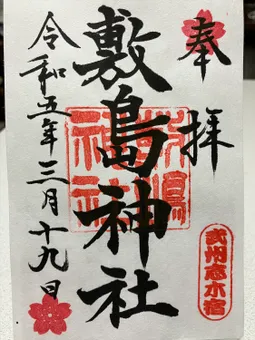 奉拝
敷島神社
令和五年三月十九日
敷島神社
武州志木宿